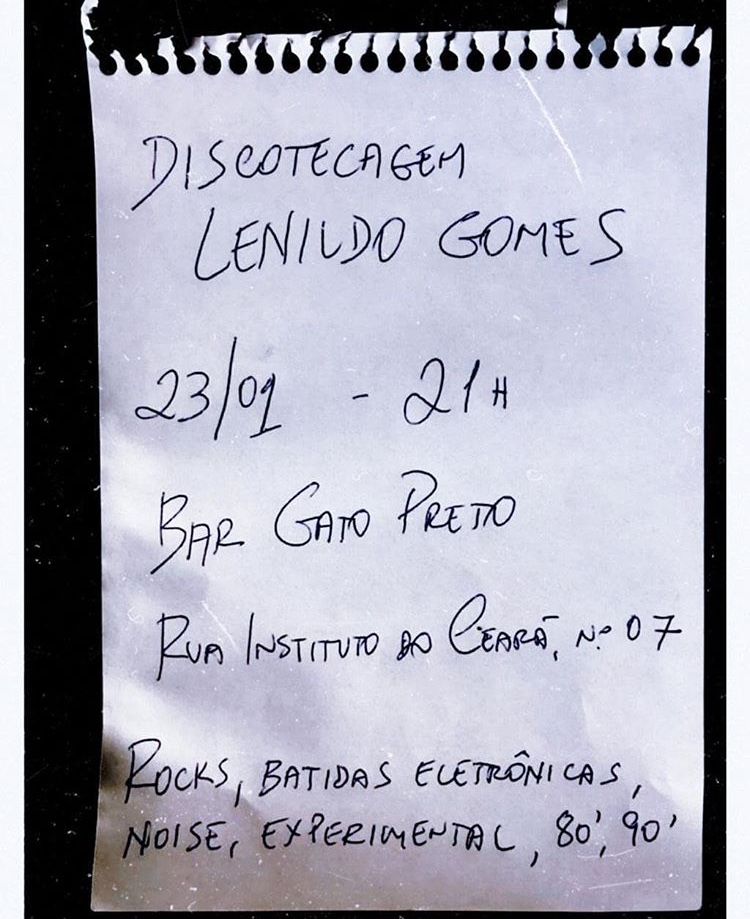 DISCOTECAGEM
LENILDO GOMES
23/01 - 21H
BAR GATO PRETO
RUA INSTITUTO DO CEARÁ, Nº 07
ROCKS, BATIDAS ELETRÔNICAS,
NOISE, EXPERIMENTAL, 80', 90'